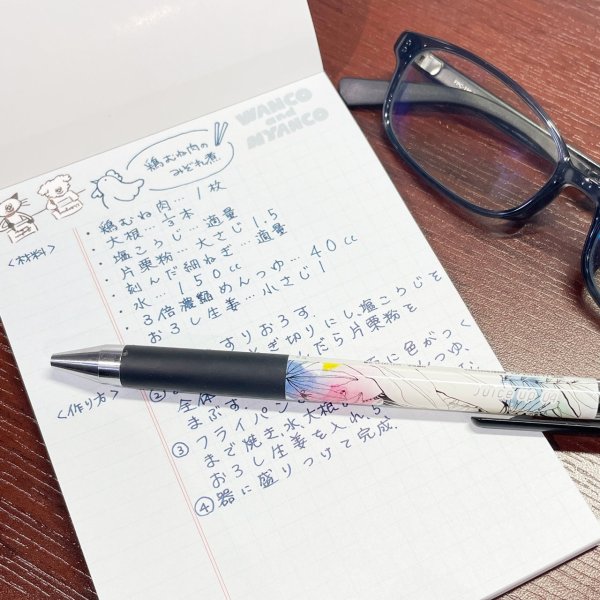 WANCO
and
NYANCO
鶏むね肉の
みぞれ煮
<材料>
・鶏むね肉…1枚
・大根…1/3本
・塩こうじ…適量
・片栗粉…大さじ1.5
・刻んだ細ねぎ…適量
・水…150cc
・3倍濃縮めんつゆ…40cc
・おろし生姜…小さじ1
<作り方>
すりおろす。
ぎ切りにし、塩こうじを
だら片栗粉を
②
全体
まぶす。
に色がつく
③フライパン
まで焼き、水、大根
つゆ、
おろし生姜を入れ、5
④器に盛りつけて完成。
JUICE up